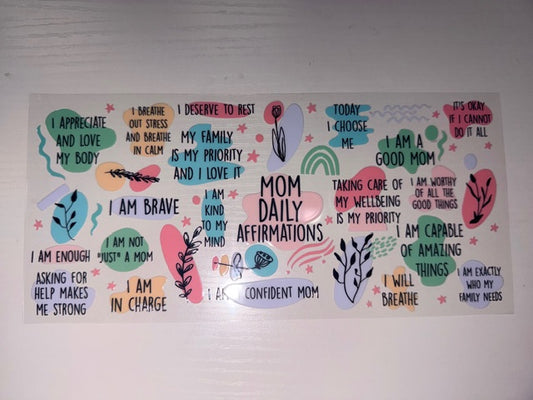 I APPRECIATE
AND LOVE
MY BODY
I BREATHE
OUT STRESS
AND BREATHE
IN CALM
I DESERVE TO REST
MY FAMILY
IS MY PRIORITY
AND I LOVE IT
TODAY
I CHOOSE
ME
IT'S OKAY
IF I CANNOT
DO IT ALL
I AM A
GOOD MOM
I AM BRAVE
I AM
KIND
TO MY
MIND
MOM
DAILY
AFFIRMATIONS
TAKING CARE OF
MY WELLBEING
IS MY PRIORITY
I AM WORTHY
OF ALL THE
GOOD THINGS
I AM ENOUGH
I AM NOT
"JUST" A MOM
I AM CAPABLE
OF AMAZING
THINGS
ASKING FOR
HELP MAKES
ME STRONG
I AM
IN CHARGE
I AM A CONFIDENT MOM
I WILL
BREATHE
I AM EXACTLY
WHO MY
FAMILY NEEDS